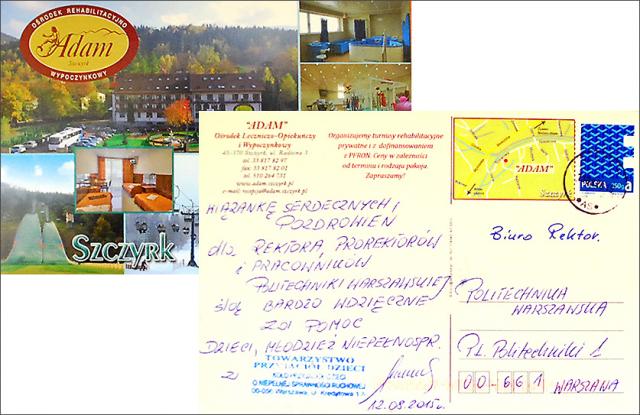 OŚRODEK REHABILITACYJNO
Adam
Szczyrk
WYPOCZYNKOWY
Szczyrk
"ADAM"
Ośrodek Leczniczo-Opiekuńczy
i Wypoczynkowy
43-370 Szczyrk, ul. Radosna 1
tel. 33 817 82 97
fax 33 817 82 01
www.adam.szczyrk.pl
Organizujemy turnusy rehabilitacyjne
prywatne i z dofinansowaniem
z PFRON. Ceny w zależności
od terminu i rodzaju pokoju.
Zapraszamy!
"ADAM"
Szczyrk
POLSKA
WIĄZANKĘ SERDECZNYCH
POZDROWIEŃ
dla REKTORA, PROREKTORÓW
i PRACOWNIKÓW
POLITECHNIKI WARSZAWSKIEJ
ślą BARDZO WDZIĘCZNE
ZA POMOC
DZIECI, MŁODZIEŻ NIEPEŁNOSPR.
z
TOWARZYSTWO
PRZYJACIÓŁ DZIECI
O NIEPEŁNEJ SPRAWNOŚCI RUCHOWEJ
00-056 Warszawa, ul. Kredytowa 1A
12.09.2015r.
Biuro Rektor.
POLITECHNIKA
WARSZAWSKA
PL. Politechniki 1
00-661 WARSZAWA